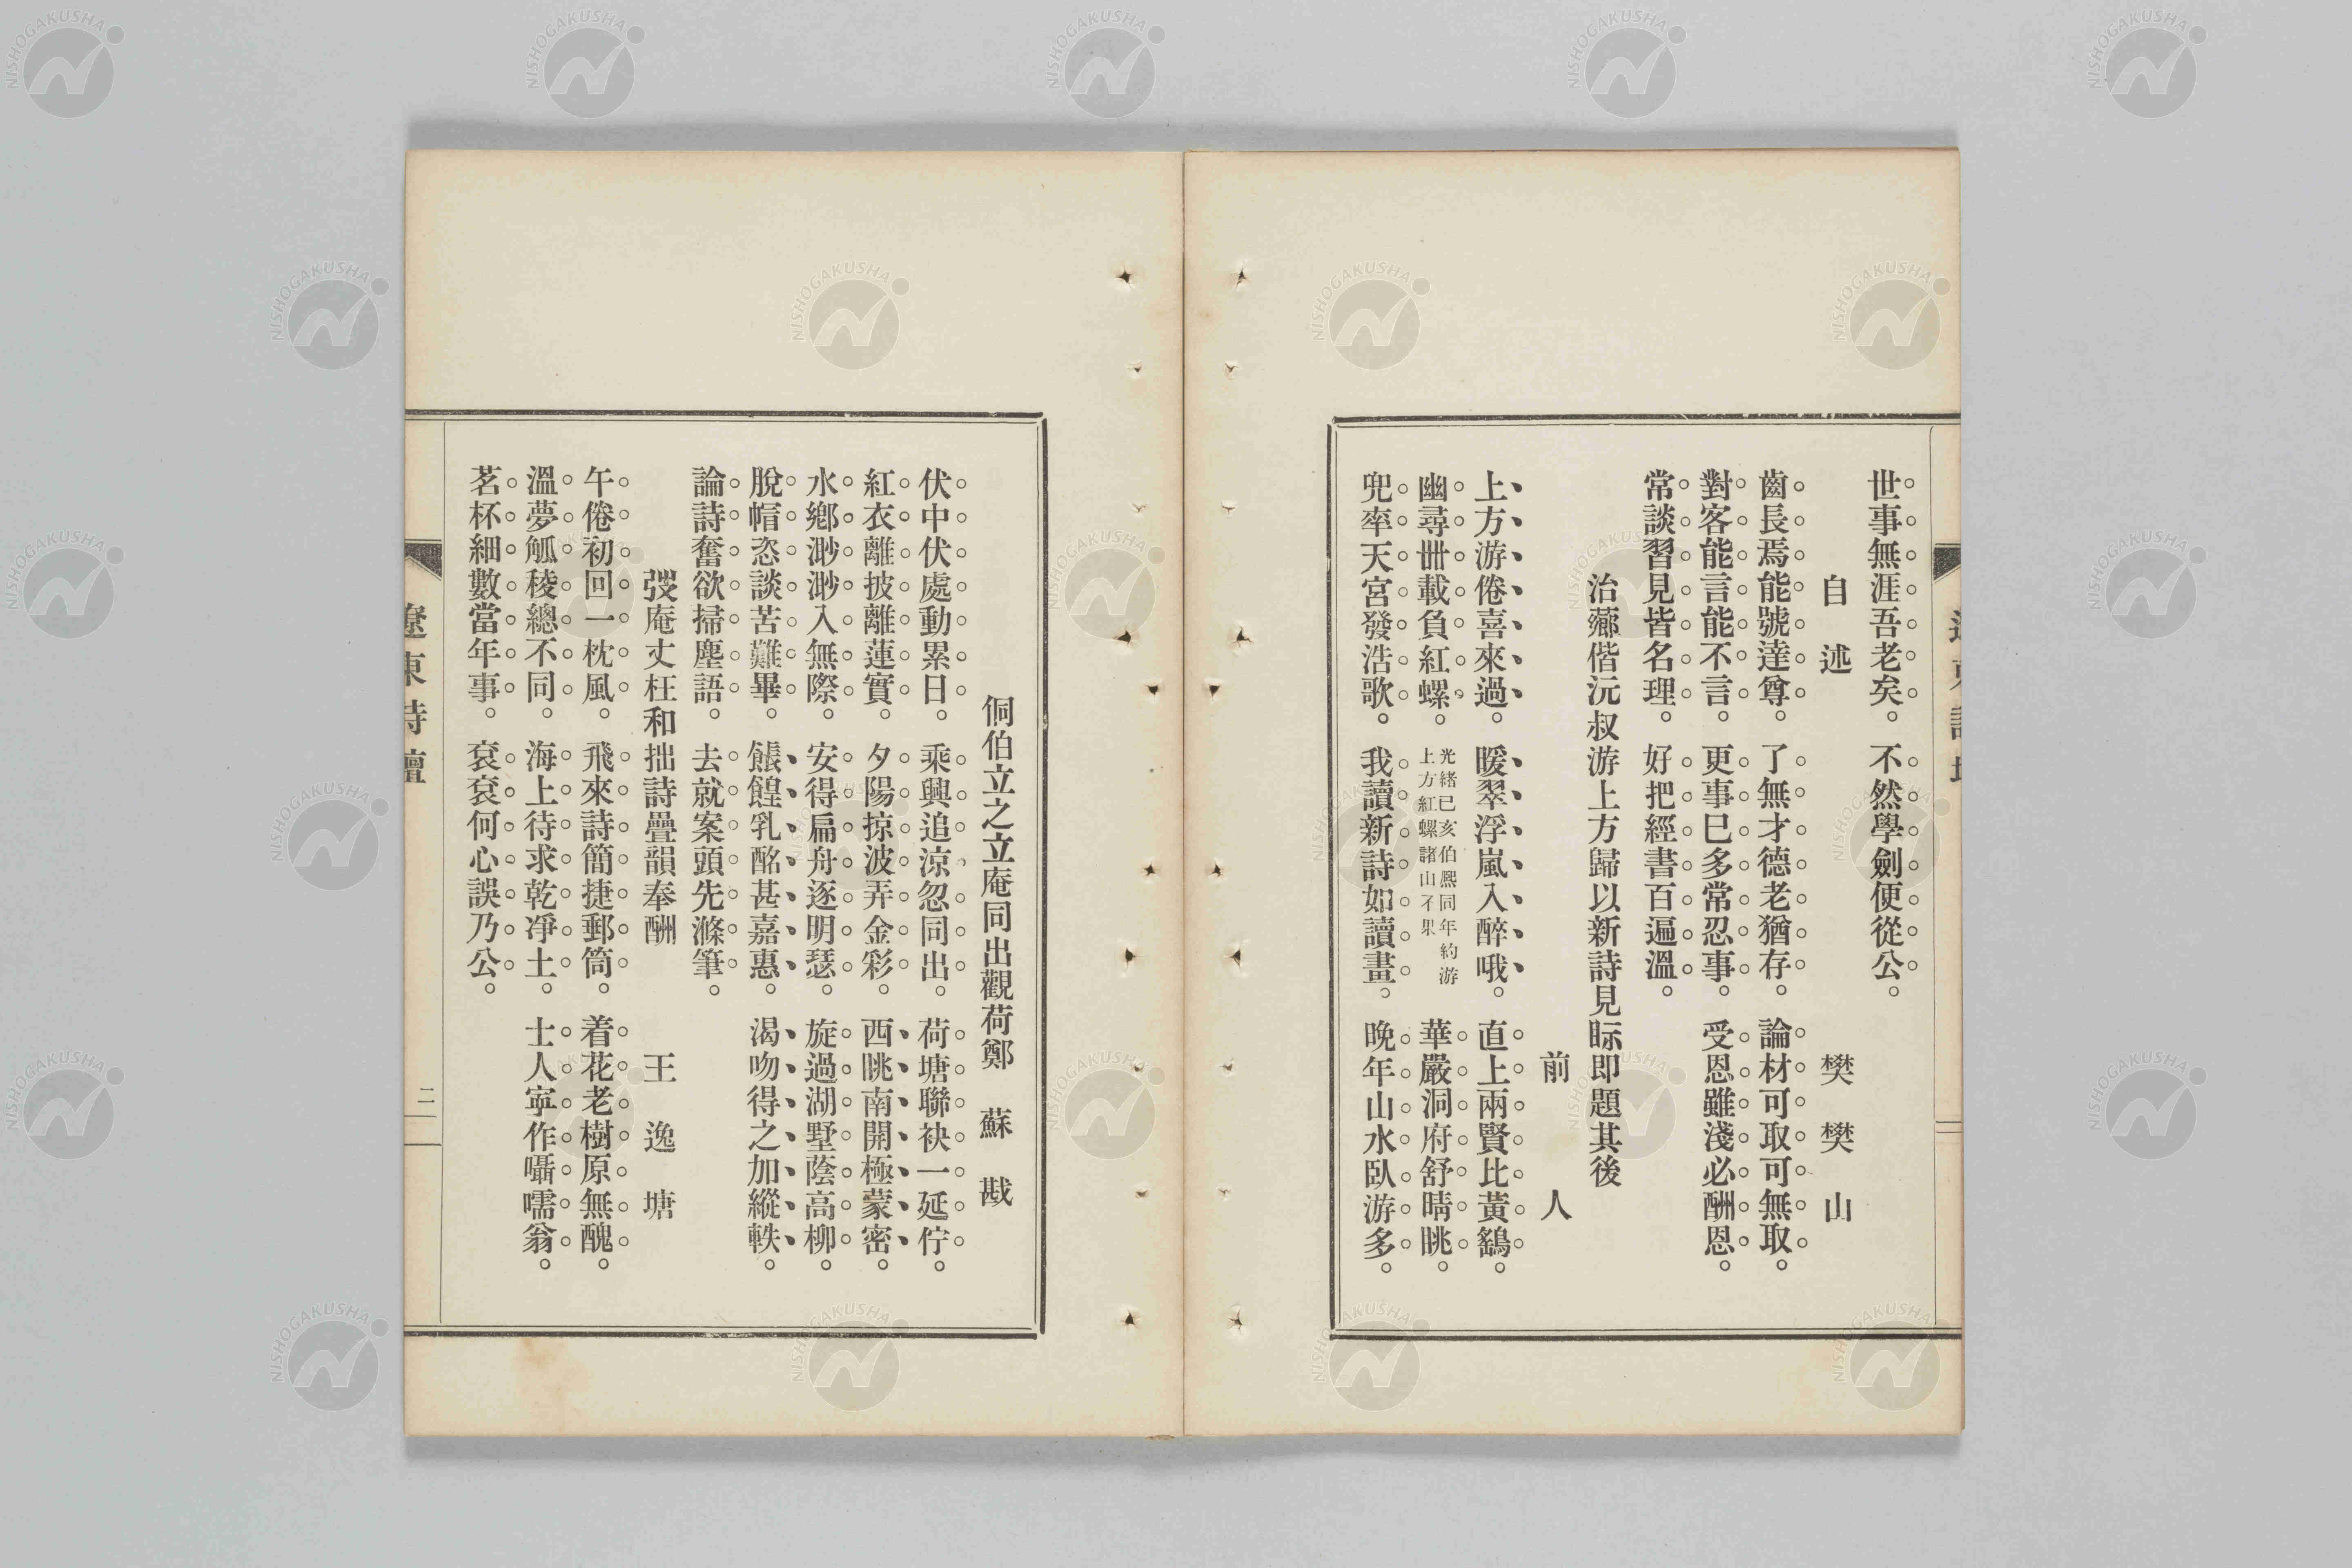 世事無涯吾老矣。不然學劍便從公。
自述　樊樊山
齒長焉能號達尊。了無才德老猶存。論材可取可無取。
對客能言能不言。更事已多常忍事。受恩雖淺必酬恩。
常談習見皆名理。好把經書百遍溫。
治薌偕沅叔游上方歸以新詩見眎即題其後
前人
上方游倦喜來過。暖翠浮嵐入醉哦。直上兩賢比黃鵠。
幽尋卌載負紅螺。光緒已亥伯熈同年約游上方紅螺諸山不果華嚴洞府舒晴眺。
兜率天宮發浩歌。我讀新詩如讀畫。晚年山水臥游多。
侗伯立之立庵同出觀荷鄭蘇戡
伏中伏處動累日。乘興追涼忽同出。荷塘聯袂一延佇。
紅衣離披離蓮實。夕陽掠波弄金彩。西眺南開極蒙密。
水鄉渺渺入無際。安得扁舟逐明瑟。旋過湖墅蔭高柳。
脫帽恣談苦難畢。餦餭乳酩甚嘉惠。渴吻得之加縱軼。
論詩奮欲掃塵語。去就案頭先滌筆。
弢庵丈枉和拙詩疊韻奉酬　王逸塘
午倦初回一枕風。飛來詩簡捷郵筒。着花老樹原無醜。
溫夢觚稜總不同。海上待求乾凈土。士人寧作囁嚅翁。
茗杯細數當年事。袞袞何心誤乃公。
遼東詩壇
二
NISHOGAKUSHA